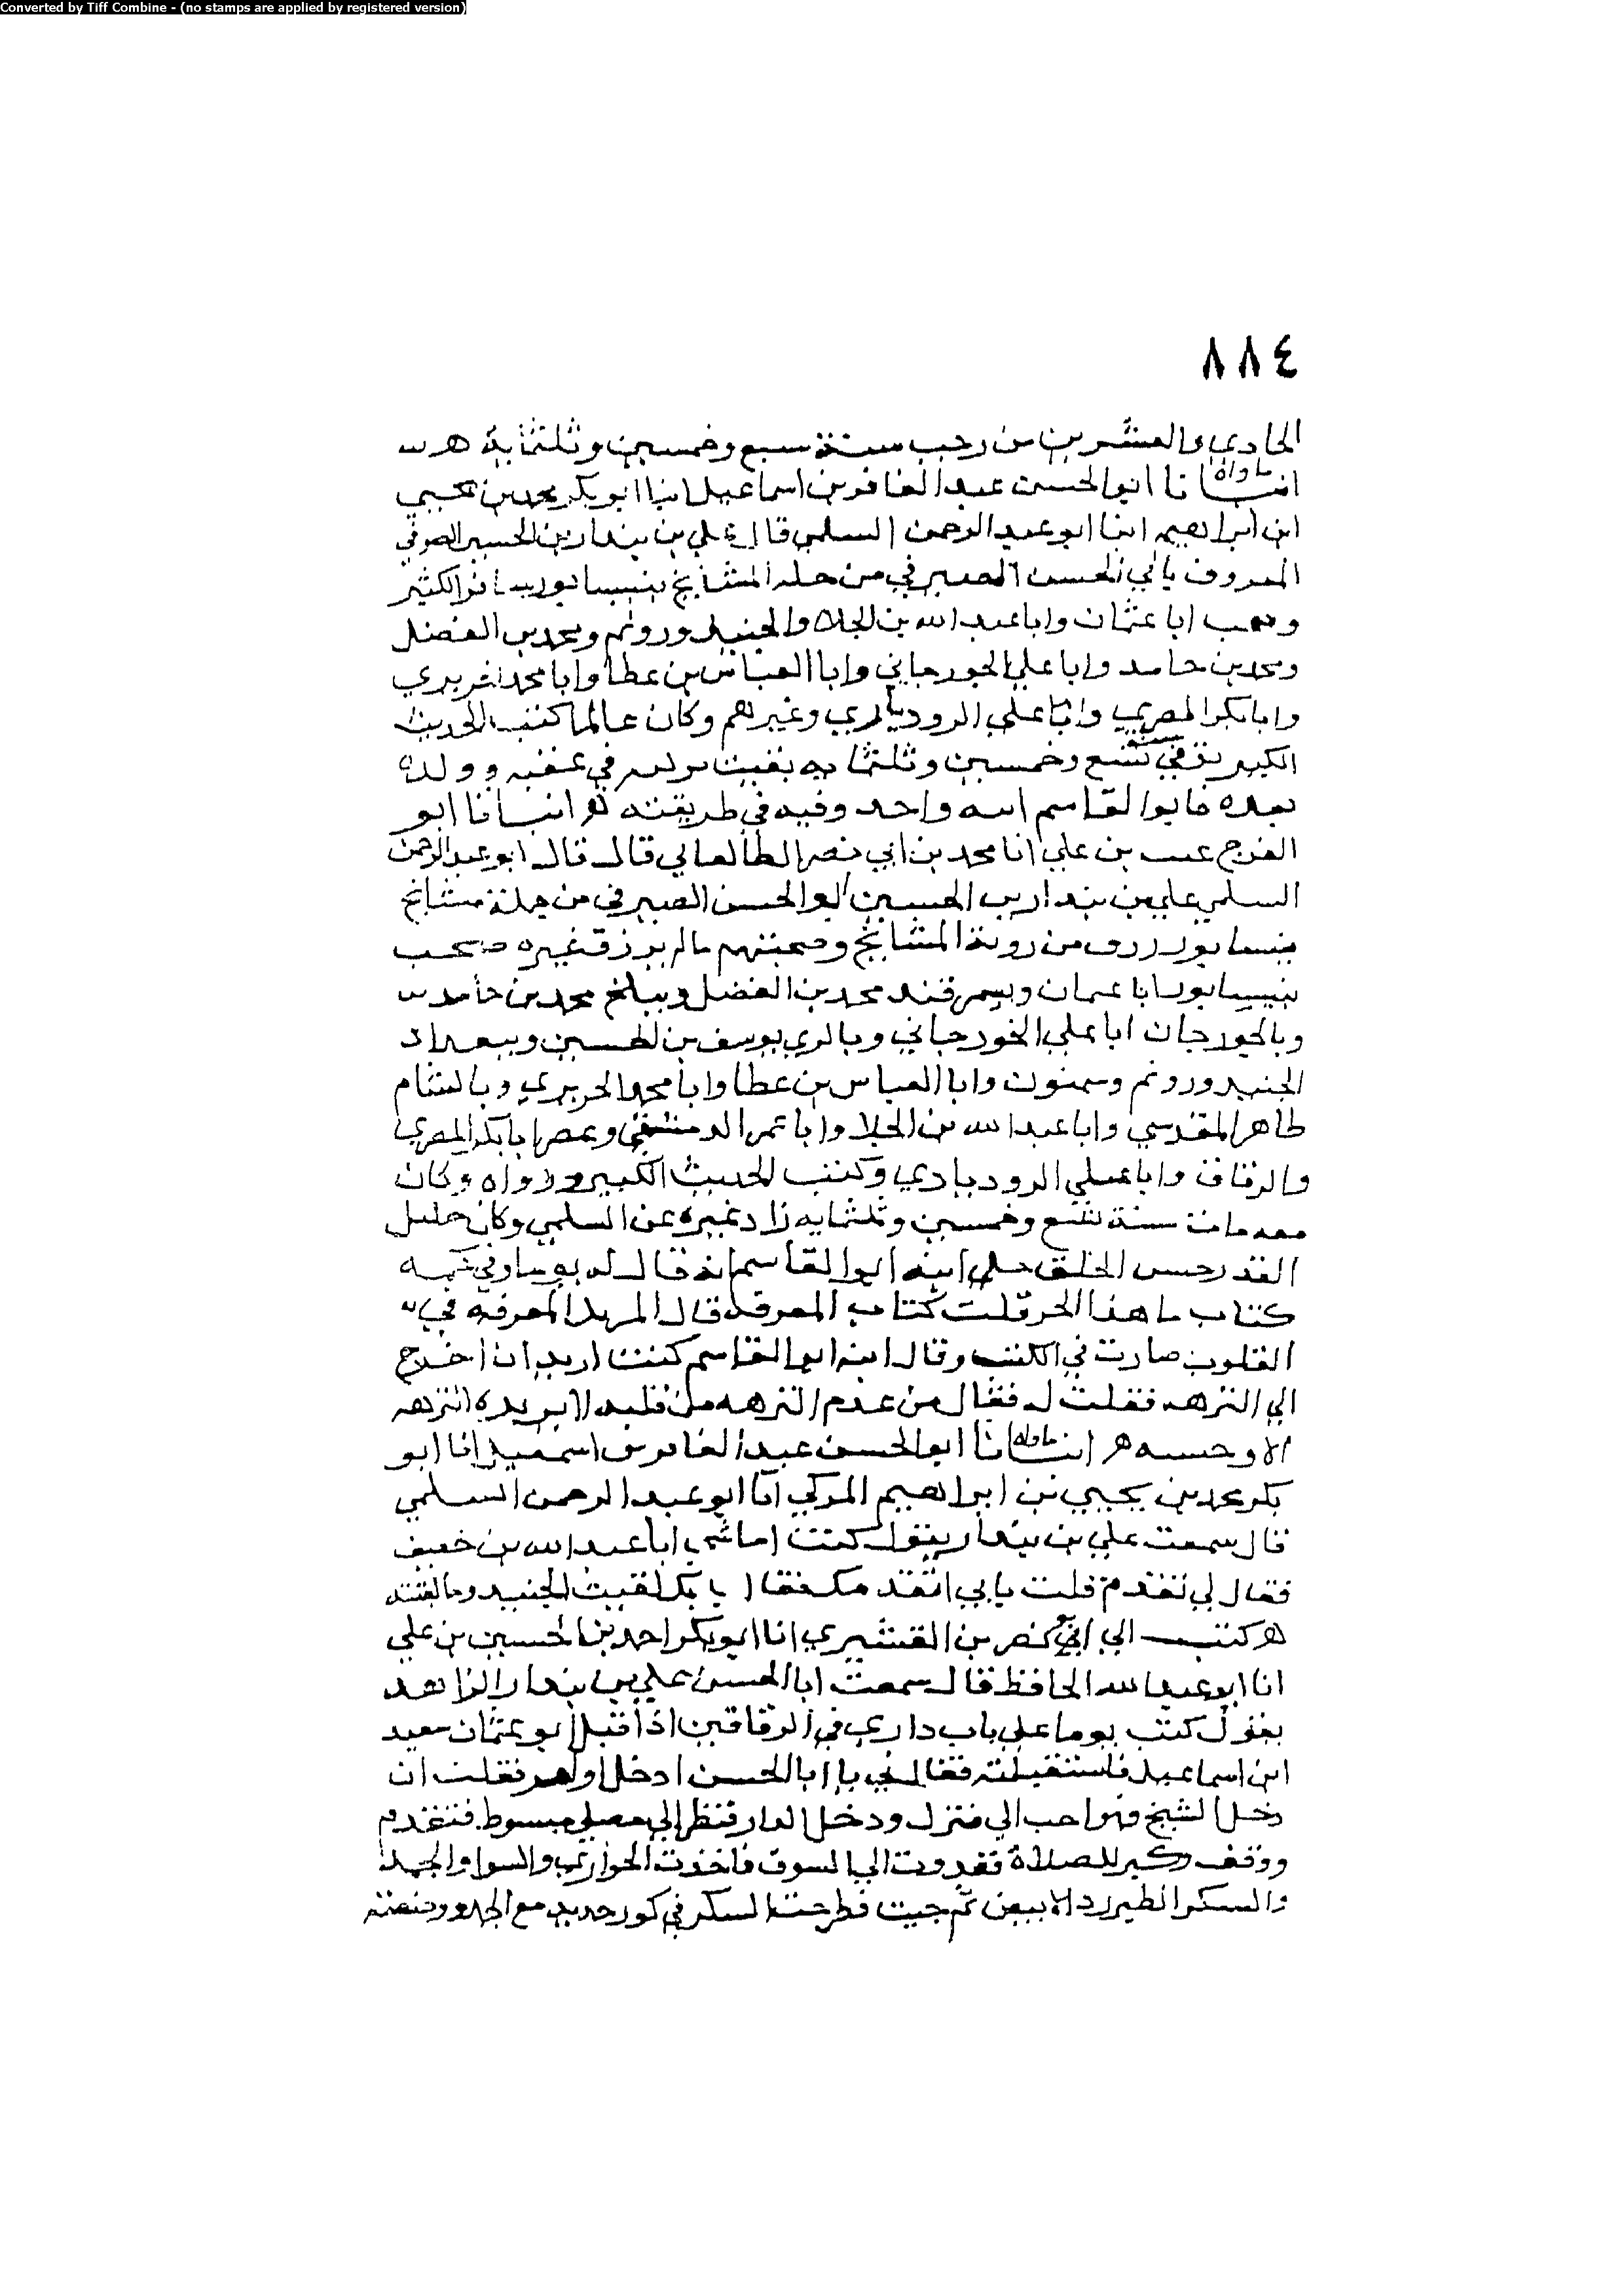 Converted by Tiff Combine - (no stamps are applied by registered version)
٨٨٤
الحادي والعشرين من رجب سنة سبع وخمسين وثلثماية هـ
انبانا ابو الحسن عبد الغافر بن اسماعيل انبا ابو بكر محمد بن يحيى
ابن ابراهيم ابنا ابو عبد الرحمن السلمي قال علي بن بندار بن الحسين الصوفي
المعروف بابي الحسن الصيرفي من جله المشايخ بنيسابور سافر الكثير
وصحب ابا عثمان وابا عبد الله بن الجلاء والجنيد ورويم ومحمد بن الفضل
ومحمد بن حامد وابا علي الجورجاني وابا العباس بن عطا وابا محمد
وابا بكر المصري وابا علي الرودباري وغيرهم وكان عالما كتب الحديث
الكبير توفي سنة تسع وخمسين وثلثمايه بقيت في عقبه وولده
بعده فابو القاسم ابنه واحد وقته في طريقته هـ انبانا ابو
الفرج غيث بن علي انا محمد بن ابي نصر الطالقاني قال قال ابو عبد الرحمن
السلمي علي بن بندار بن الحسين ابو الحسن الصيرفي من جملة مشايخ
نيسابور رزق من روية المشايخ وصحبتهم ما لم يرزق غيره صحب
بنيسابور ابا عثمان وبسمرقند محمد بن الفضل وببلخ محمد بن حامد
وبالجورجان ابا علي الجورجاني وبالري يوسف بن الحسين وببغداد
الجنيد ورويم وسمنون وابا العباس بن عطا وابا محمد الحريري وبالشام
طاهر المقدسي وابا عبد الله بن الجلا وابا عمر الدمشقي وبمصر ابا بكر المصري
والزقاق وابا علي الرودباري وكتب الحديث الكبير ورواه وكان
مات سنة تسع وخمسين وثلثمايه زاد غيره عن السلمي وكان جليل
القدر حسن الخلق حكى ابنه ابو القاسم انه قال له يوما وفي كمه
كتاب ما هذا الجز قلت كتاب المعرفة قال الم المعرفة في
القلوب صارت في الكتب وقال ابنه ابو القاسم كنت اريد ان اخرج
الى النزهه فقلت له فقال من عدم النزهه من قلبه لا يزيده التنزهه
الا وحسه هـ انبانا ابو الحسن عبد الغافر بن اسمعيل انا ابو
بكر محمد بن يحيي بن ابراهيم المزكي انا ابو عبد الرحمن السلمي
قال سمعت علي بن بندار يقول كنت اماشي ابا عبد الله بن خفيف
فقال لي تقدم قلت باي اتقدمك فقال بانك لقيت الجنيد وما لقيته
هـ كتب الي ابو نصر بن القشيري انا ابو بكر احمد بن الحسين بن علي
انا ابو عبد الله الحافظ قال سمعت ابا الحسن علي بن بندار الزاهد
يقول كنت يوما علي باب داري في الزقاقين اذا اقبل ابو عثمان سعيد
ابن اسماعيل فاستقبلته فقال لي يا ابا الحسن ادخل فقلت ان
دخل الشيخ فهو احب الي فنزل ودخل الدار فنظر الى مصلي مبسوط فتقدم
ووقف وكبر للصلاة فغدوت الى السوق فاخذت الجواري والسوا والجمد
والسكر الابيض ثم جيت فطرحت السكر في كوز جديد مع الجمد